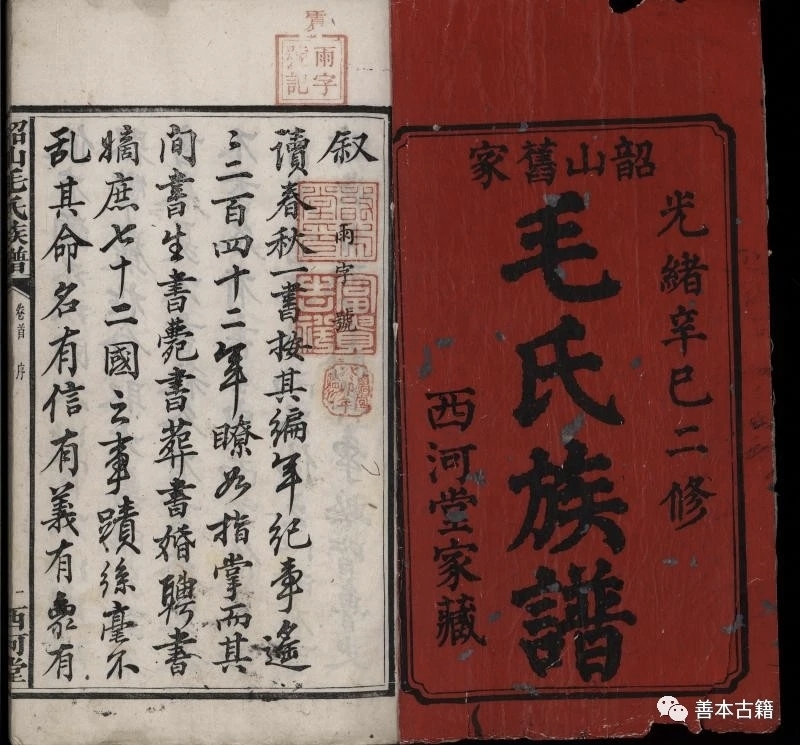 韶山舊家
光緒辛巳二修
毛氏族譜
西河堂家藏
雨字
號記
叙
雨字號
讀春秋一書按其編年紀事遙
遙二百四十二年瞭如指掌而其
间書生書薨書葬書婚聘書
嫡庶七十二國之事蹟絲毫不
乱其命名有信有義有象有
韶山毛氏族譜
卷首
序
一
西河堂
善本古籍